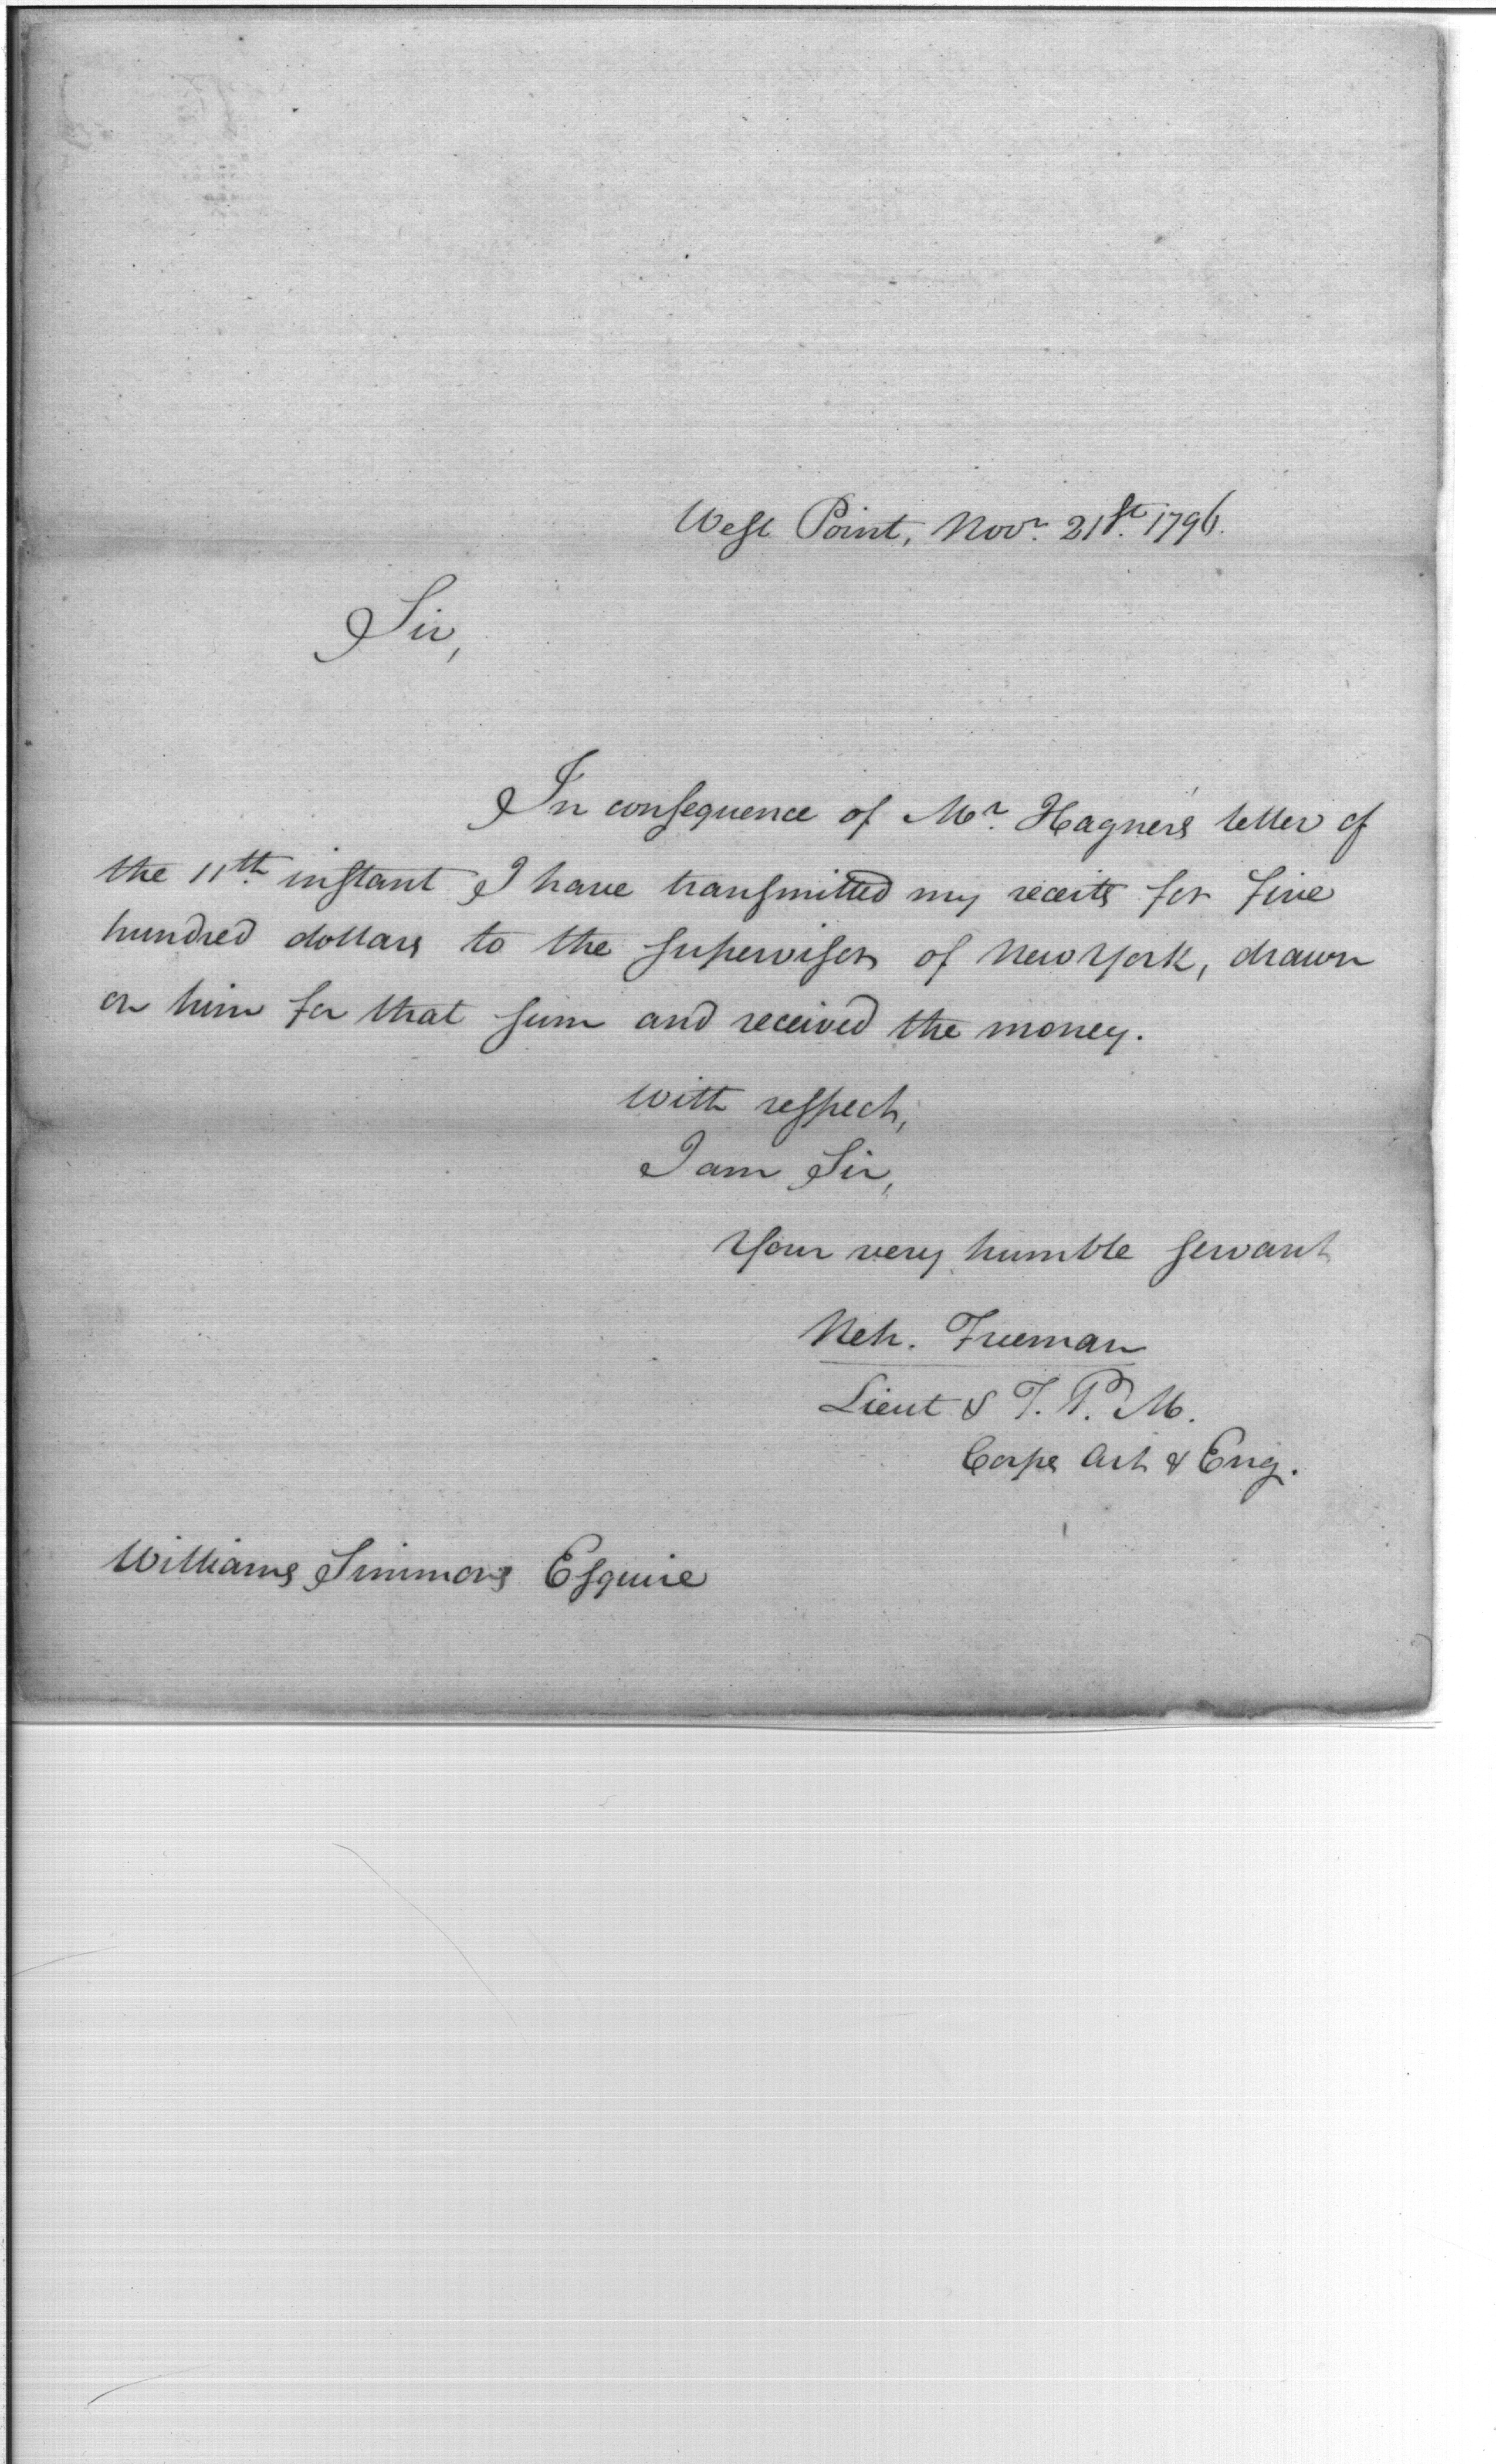 West Point, Novr. 21st. 1796.
Sir,
In consequence of Mr. Hagner's letter of
the 11th. instant I have transmitted my receits for five
hundred dollars to the supervisor of New York, drawn
on him for that sum and received the money.
With respect,
I am Sir,
Your very humble servant
Neh. Freeman
Lieut & T. P. M.
Corps Art & Eng.
Williams Simmons Esquire